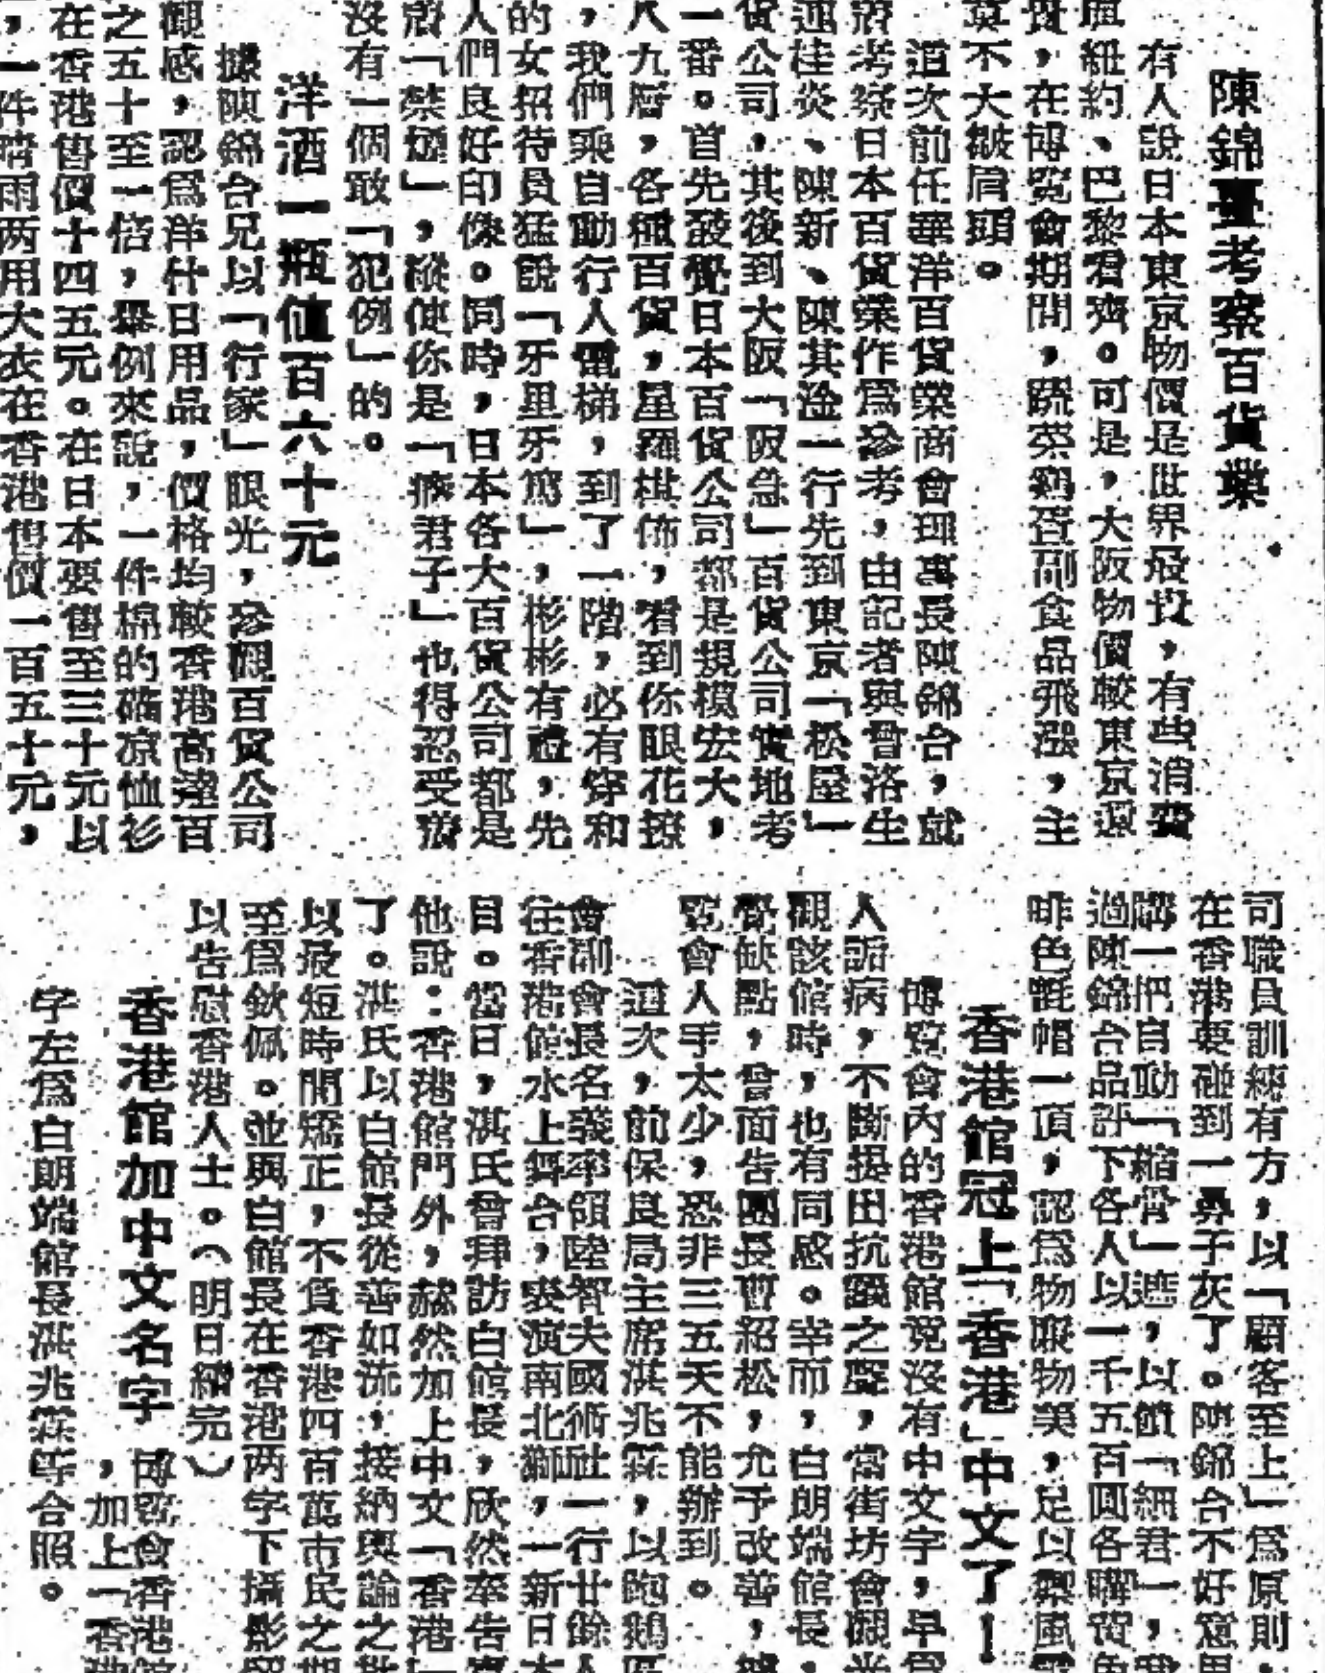 陳錦臺考察百貨業
有人說日本東京物價是世界最貴,有些消費
紐約、巴黎看齊。可是,大阪物價較東京還
貴,在博覽會期間,蔬菜鷄蛋副食品飛漲,主
莫不大皺眉頭。
這次前任華洋百貨業商會理事長陳錦台,就
考察日本百貨業作爲參考,由記者與曾洛生
連桂炎、陳新、陳其淦一行先到東京「松屋」
貨公司,其後到大阪「阪急」百貨公司實地考
一番。首先發覺日本百貨公司都是規模宏大,
八九層,各種百貨,星羅棋佈,看到你眼花撩
,我們乘自動行人電梯,到了一階,必有穿和
的女招待員猛說「牙里牙篤」,彬彬有禮,先
人們良好印像。同時,日本各大百貨公司都是
「禁煙」,縱使你是「癮君子」也得忍受
沒有一個敢「犯例」的。
洋酒一瓶值百六十元
據陳錦台兄以「行家」眼光,參觀百貨公司
觀感,認爲洋什日用品,價格均較香港高達百
之五十至一倍,舉例來說,一件棉的確凉恤衫
在香港售價十四五元。在日本要售至三十元以
,一件晴雨两用大衣在香港售價一百五十元,
司職員訓練有方,以「顧客至上」爲原則,
在香港要碰到一鼻子灰了。陳錦台不好意思
購一把自動「縮骨」遮,以饋「細君」,
過陳錦台品評下各人以一千五百圓各購
啡色氈帽一頂,認爲物廉物美,足以禦風
香港館冠上「香港」中文了!
博覽會內的香港館竟沒有中文字,早
人詬病,不斷提出抗議之聲,當街坊會觀光
觀該館時,也有同感。幸而,白朗端館長,
覺缺點,曾面告團長曹紹松,允予改善,
覽會人手太少,恐非三五天不能辦到。
這次,前保良局主席淇兆霖,以鉋鵝區
會副會長名義率領陸智夫國術社一行廿餘人
往香港館水上舞台,表演南北獅,一新日本
目。當日,淇氏曾拜訪白館長,欣然奉告
他說:香港館門外,赫然加上中文「香港」
了。淇氏以白館長從善如流,接納輿論之
以最短時間矯正,不負香港四百萬市民之期
至爲欽佩。並與白館長在香港两字下攝影留
以告慰香港人士。(明日續完)
香港館加中文名字
博覽會香港館
,加上「香港
字左爲白朗端館長淇兆霖等合照。